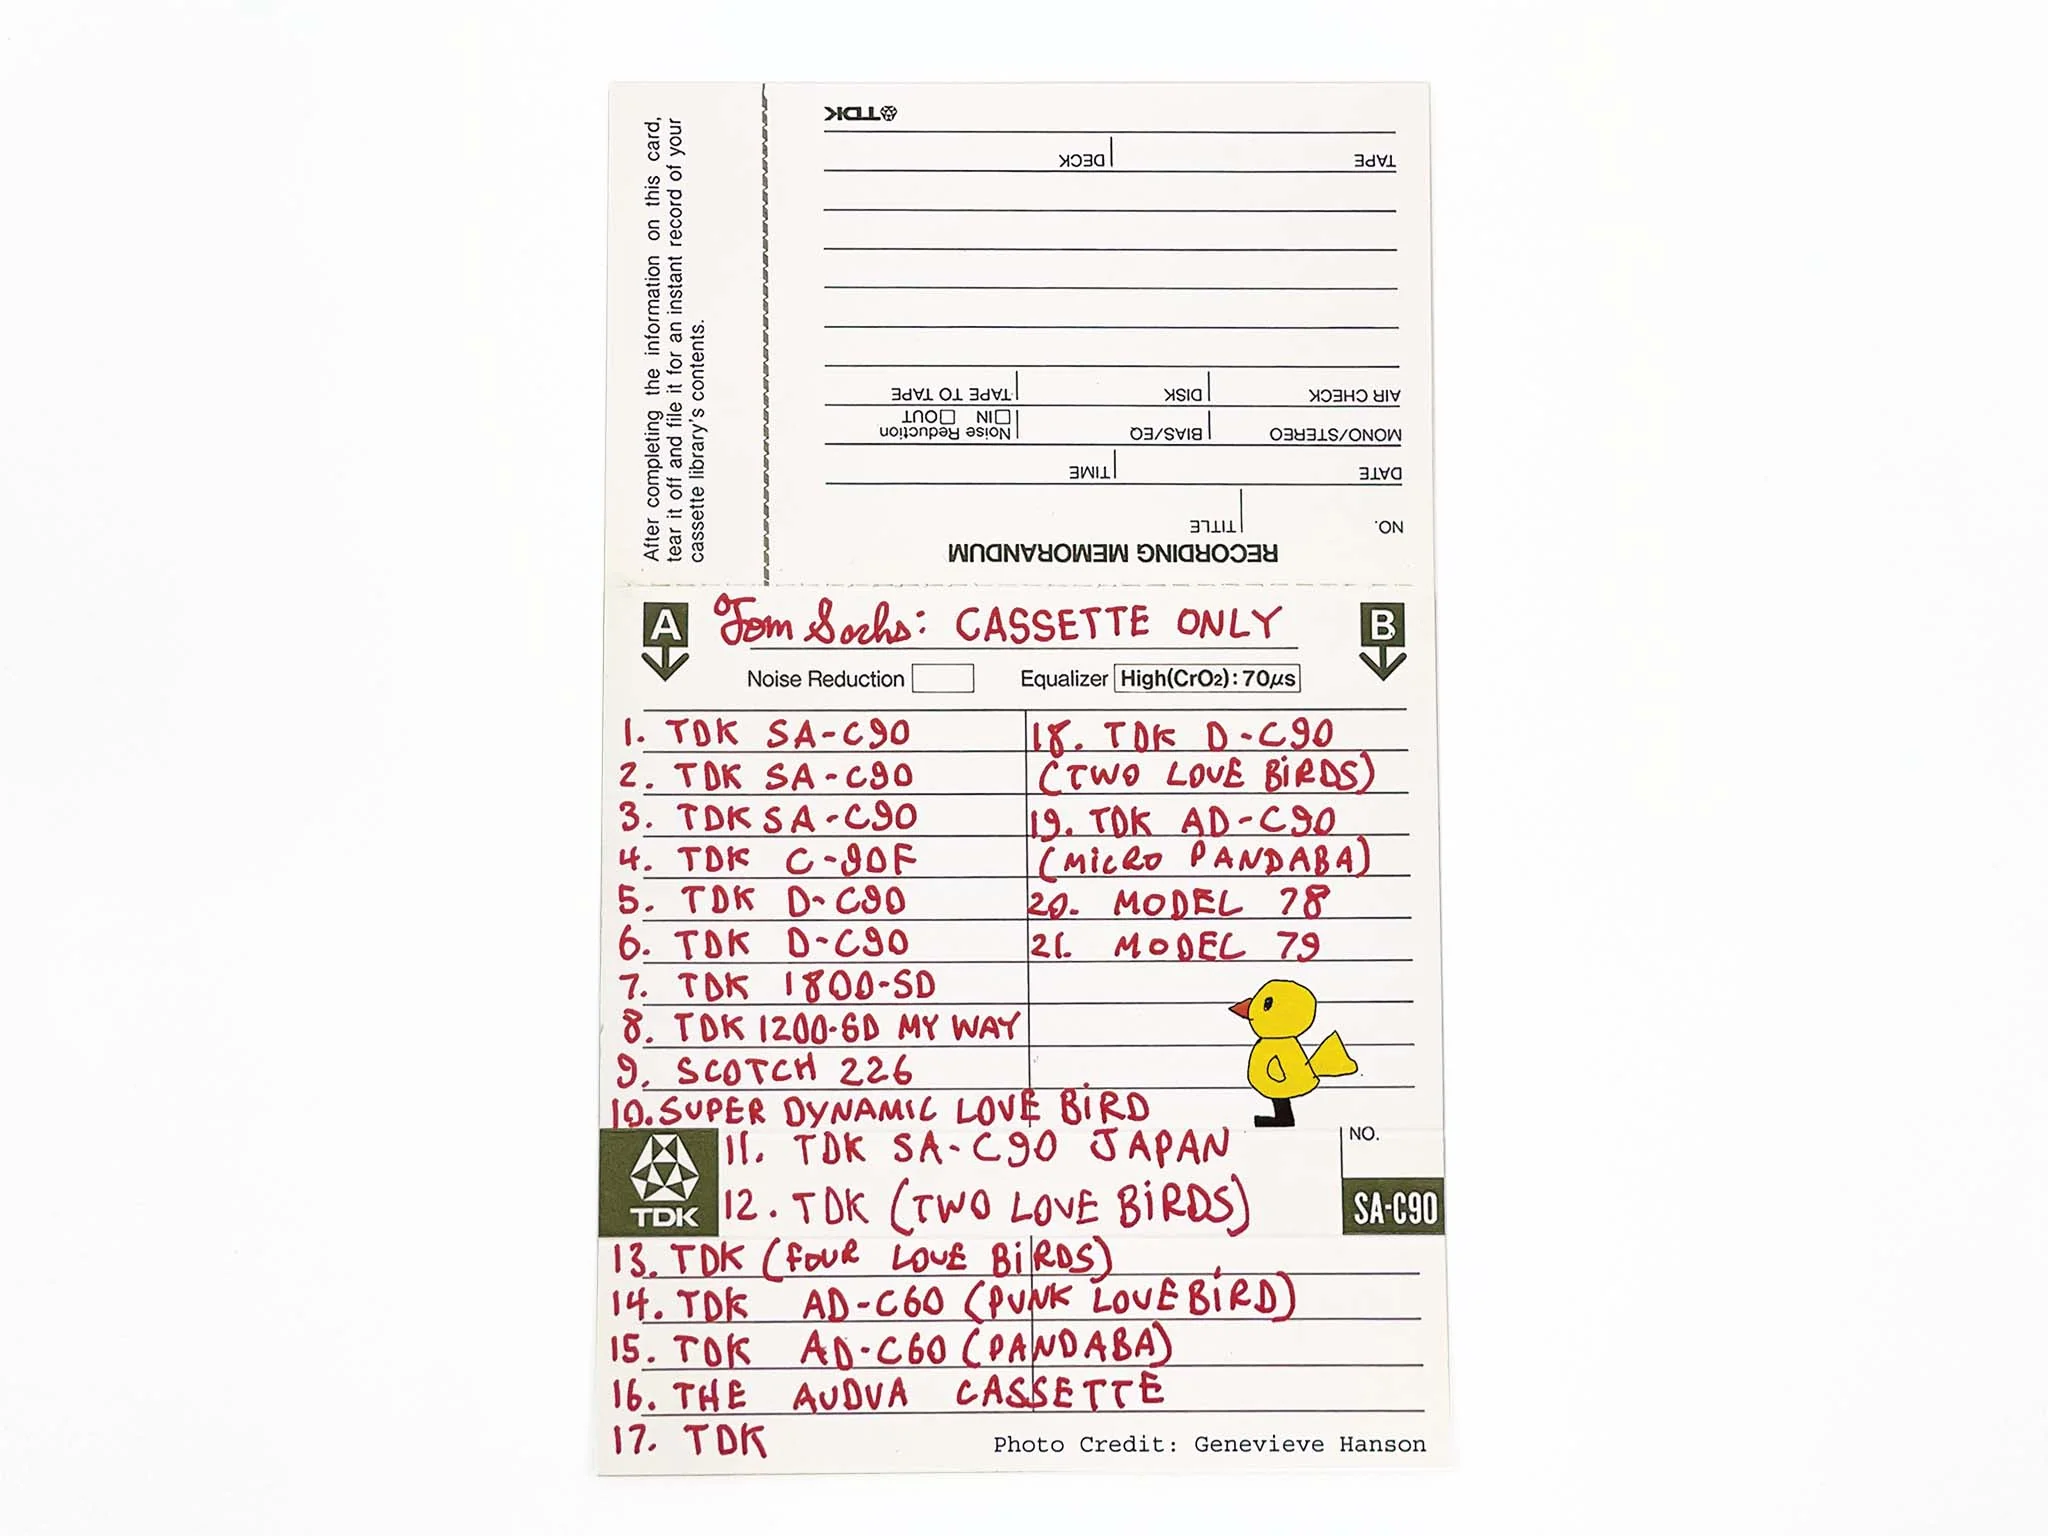 After completing the information on this card,
tear it off and file it for an instant record of your
cassette library's contents.
RECORDING MEMORANDUM
NO. TITLE
DATE TIME
MONO/STEREO BIAS/EQ Noise Reduction □IN □OUT
AIR CHECK DISK TAPE TO TAPE
TAPE DECK
TDK
A Tom Sachs: CASSETTE ONLY B
Noise Reduction Equalizer High(CrO2):70μs
1. TDK SA-C90
2. TDK SA-C90
3. TDK SA-C90
4. TDK C-90F
5. TDK D-C90
6. TDK D-C90
7. TDK 1800-SD
8. TDK 1200-SD MY WAY
9. SCOTCH 226
10. SUPER DYNAMIC LOVE BiRD
TDK
11. TDK SA-C90 JAPAN
12. TDK (TWO LOVE BiRDS)
NO.
SA-C90
13. TDK (FOUR LOVE BiRDS)
14. TDK AD-C60 (PUNK LOVE BiRD)
15. TDK AD-C60 (PANDABA)
16. THE AUDVA CASSETTE
17. TDK
18. TDK D-C90
(TWO LOVE BiRDS)
19. TDK AD-C90
(MiCRO PANDABA)
20. MODEL 78
21. MODEL 79
Photo Credit: Genevieve Hanson